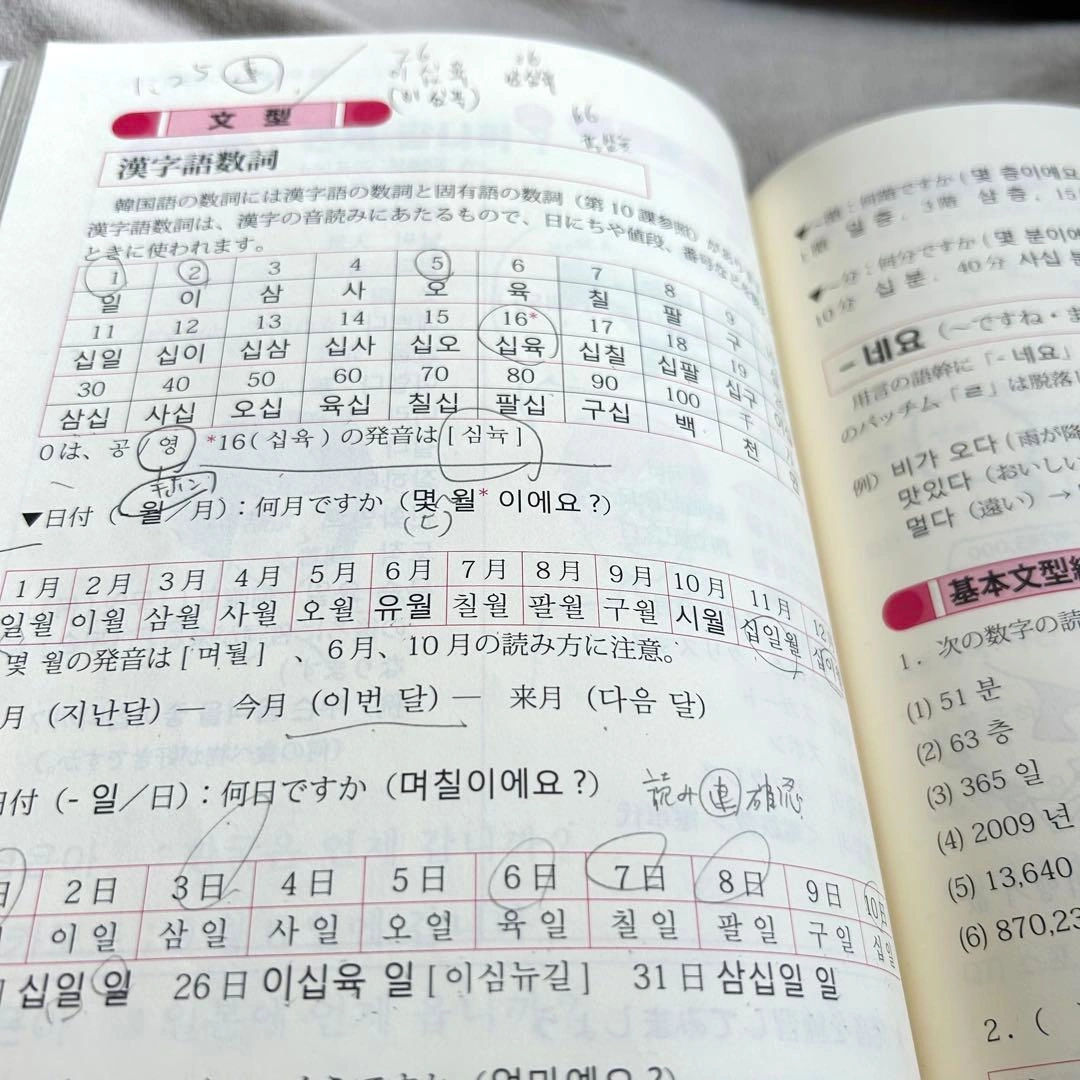 1, 2 5 連
26
이십육
(비 십육)
36
삼십육
66
文型
漢字語数詞
韓国語の数詞には漢字語の数詞と固有語の数詞（第10課参照）があり
漢字語数詞は、漢字の音読みにあたるもので、日にちや値段、番号など
ときに使われます。
1 2 3 4 5 6 7 8 9
일 이 삼 사 오 육 칠 팔 구
11 12 13 14 15 16* 17 18 19
십일 십이 십삼 십사 십오 십육 십칠 십팔 십구
30 40 50 60 70 80 90 100 千
삼십 사십 오십 육십 칠십 팔십 구십 백 천
0は、공 (영 *16(십육)の発音は[심뉵]
キホン
▼日付（-월／月）：何月ですか（몇 월* 이에요？）
1月 2月 3月 4月 5月 6月 7月 8月 9月 10月 11月 12月
일월 이월 삼월 사월 오월 유월 칠월 팔월 구월 시월 십일월 십이
몇 월の発音は[며뒬]、6月、10月の読み方に注意。
月（지난달）— 今月（이번 달）— 来月（다음 달）
日付（-일／日）：何日ですか（며칠이에요？）
読み 連 確認
日 2日 3日 4日 5日 6日 7日 8日 9日 10日
이 일 삼 일 사 일 오 일 육 일 칠 일 팔 일 구 일 십 일
십일 일 26日 이십육 일[이심뉴길] 31日 삼십일 일
(얼마예요？)
▼-階：何階ですか（몇 층이에요
階 일 층．3階 삼 층．15
▼-分：何分ですか（몇 분이에
10分 십 분．40分 사십 분
-네요（～ですね・ま
用言の語幹に「-네요」
のパッチム「ㄹ」は脱落し
例）비가 오다（雨が降
맛있다（おいしい
멀다（遠い）→
基本文型練
1．次の数字の読
(1) 51 분
(2) 63 층
(3) 365 일
(4) 2009 년
(5) 13,640
(6) 870,23
2．（